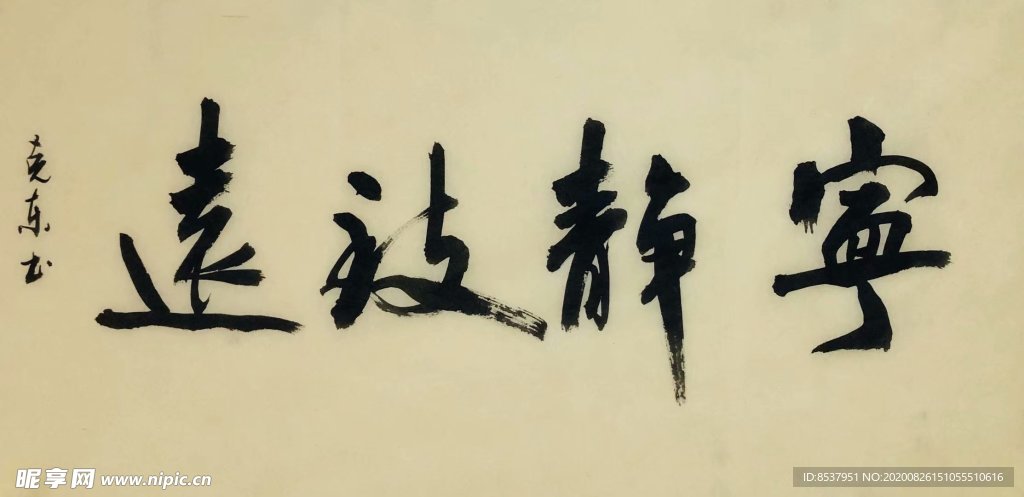 寧靜致遠
克东书
昵享网 www.nipic.cn
ID:8537951 NO:20200826151055510616